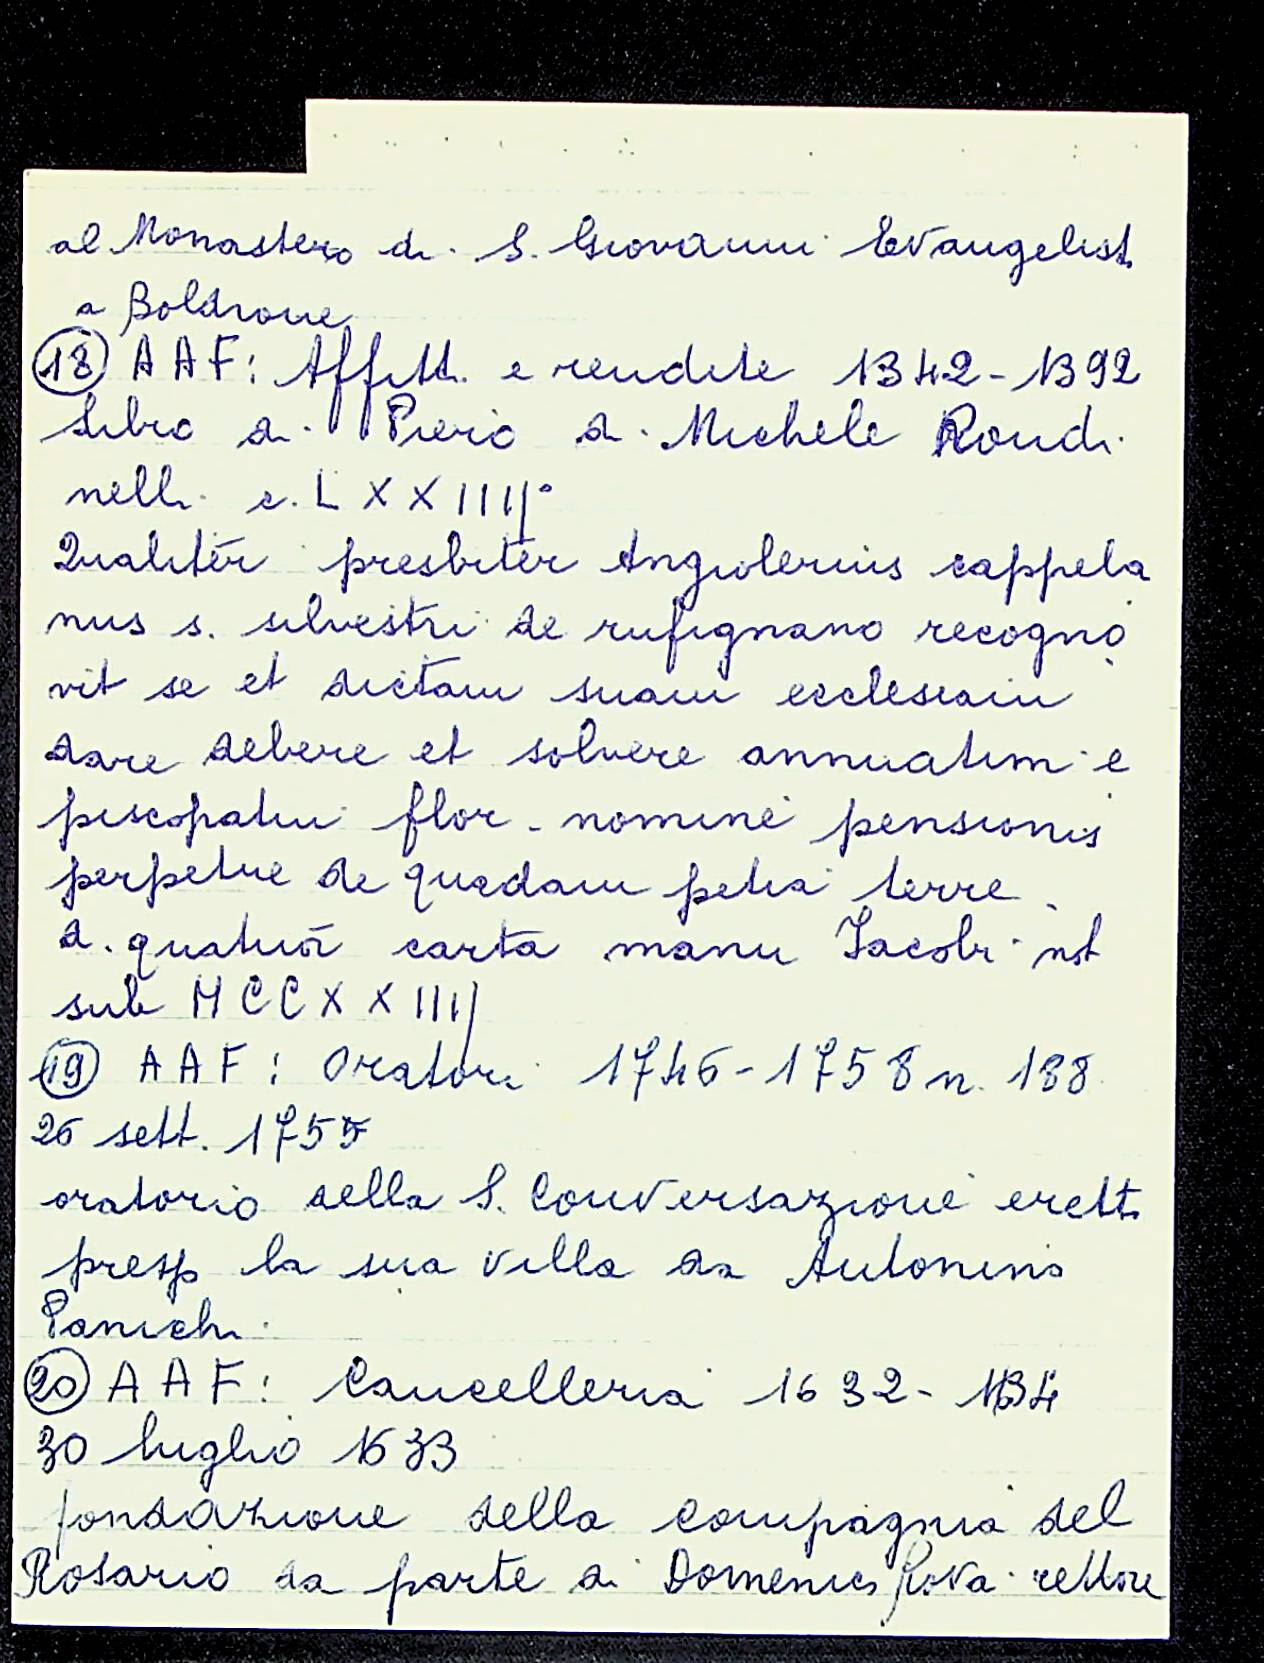 al Monastero di S. Giovanni Evangelist.
a Boldrone
(18) AAF: Affitti e rendite 1342-1392
Libro di Piero di Michele Rondi
nelli c. LXXIIIJ°
Qualiter presbiter Angiolerius cappela
nus s. silvestri de rufignano recogno
vit se et dictam suam ecclesiam
dare debere et solvere annuatim e
piscopatui flor. nomine pensionis
perpetue de quadam petia terre
d. quatuor carta manu Jacobi not
sub MCCXXIIIJ
(19) AAF: Oratori 1746-1758 n. 188
26 sett. 1755
oratorio della S. Conversazione erett.
presso la sua villa da Antonino
Panichi.
(20) AAF: Cancelleria 1632-1634
30 luglio 1633
fondazione della compagnia del
Rosario da parte di Domenico Rova rettore